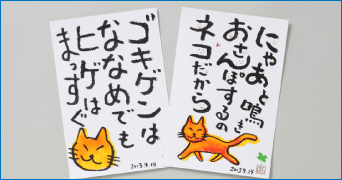 ゴキゲンは
ななめでも
ヒゲは
まっすぐ
2013.9.14
にゃあと鳴き
おさんぽするの
ネコだから
2013.9.14